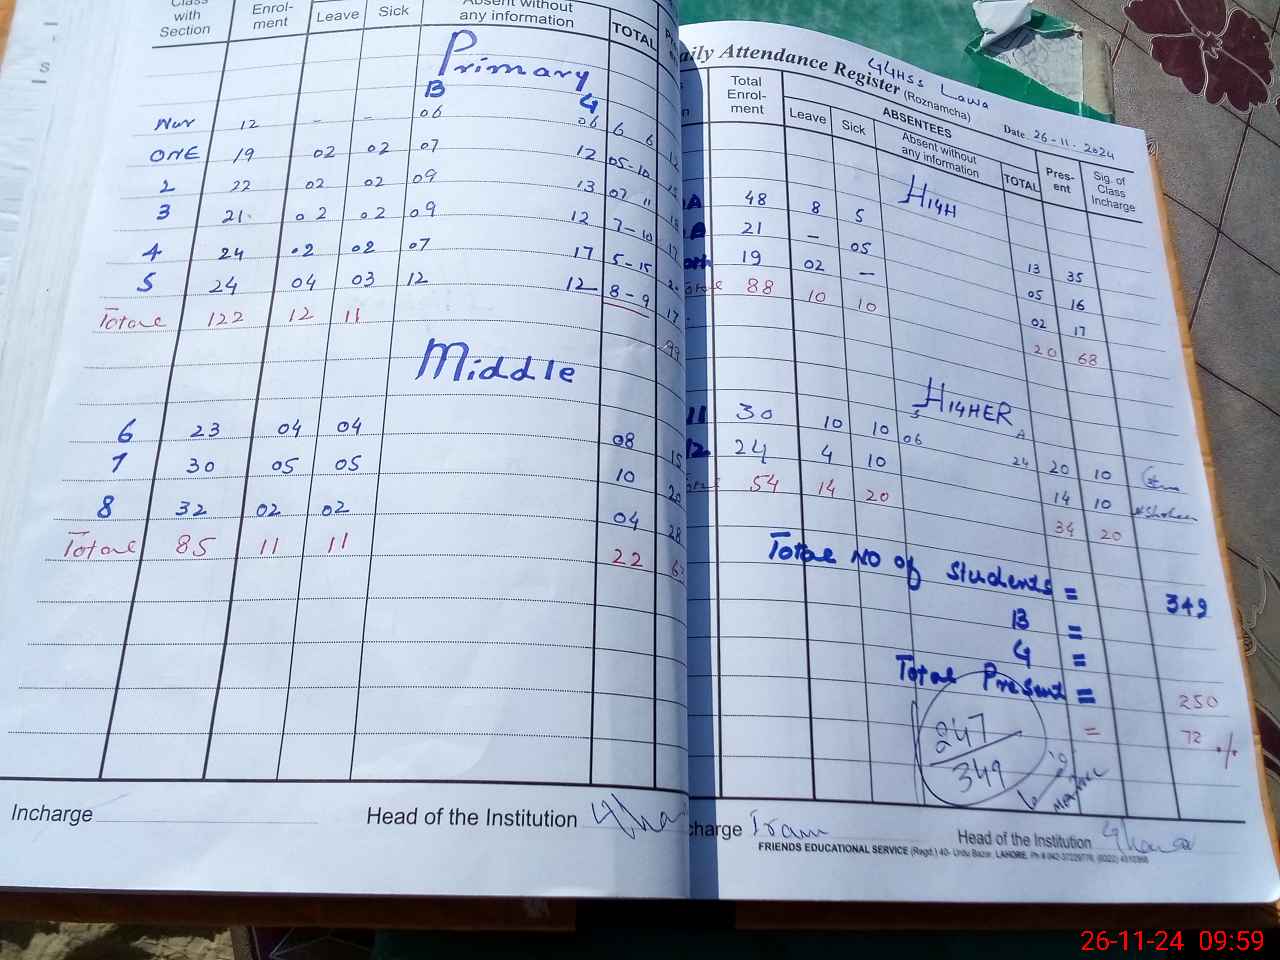 Class with Section Enrol-ment Leave Sick Absent without any information TOTAL
Primary
B G
Nur 12 - - 06 06 6 6
ONE 19 02 02 07 12 05-10
2 22 02 02 09 13 07 11
3 21 02 02 09 12 7-10
4 24 02 02 07 17 5-15
5 24 04 03 12 12 8-9 17
Total 122 12 11 99
Middle
6 23 04 04 08 15
7 30 05 05 10 20
8 32 02 02 04 28
Total 85 11 11 22
Incharge Head of the Institution
GGHSS Lawa
Daily Attendance Register (Roznamcha)
Date 26-11-2024
Total Enrol-ment ABSENTEES Pres-ent Sig. of Class Incharge
Leave Sick Absent without any information TOTAL
HIGH
48 8 5 13 35
21 - 05 05 16
19 02 - 02 17
Total 88 10 10 20 68
HIGHER
11 30 10 10 20 10
12 24 4 10 14 10
Total 54 14 20 34 20
Total NO of students = 349
B =
G =
Total Present = 250
= 72 %
247
349
Incharge Iram Head of the Institution
FRIENDS EDUCATIONAL SERVICE (Regd.) 40- Urdu Bazar, LAHORE.
26-11-24 09:59